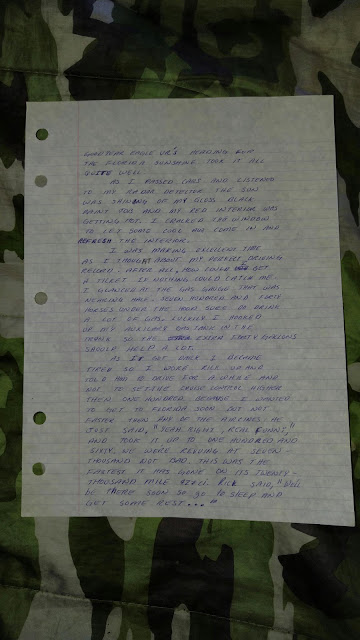 GOODYEAR EAGLE VR'S HEADING FOR
THE FLORIDA SUNSHINE TOOK IT ALL
QUITE WELL.
AS I PASSED CARS AND LISTENED
TO MY RADAR DETECTOR THE SUN
WAS SHINING OF MY GLOSS BLACK
PAINT TOO AND MY RED INTERIOR WAS
GETTING HOT. I CRACKED THE WINDOW
TO LET SOME COOL AIR COME IN AND
REFRESH THE INTERIOR.
I WAS MAKING EXCELLENT TIME
AS I THOUGHT ABOUT MY PERFECT DRIVING
RECORD. AFTER ALL, HOW COULD GET
A TICKET IF NOTHING COULD CATCH ME.
I GLANCED AT THE GAS GAUGE THAT WAS
NEARING HALF. SEVEN HUNDRED AND FORTY
HORSES UNDER THE HOOD SURE DO DRINK
A LOT OF GAS. LUCKILY I HOOKED
UP MY AUXILARY GAS TANK IN THE
TRUNK SO THE EXTRA FORTY GALLONS
SHOULD HELP A LOT.
AS IT GOT DARK I BECAME
TIRED SO I WOKE RICK UP AND
TOLD HIM TO DRIVE FOR A WHILE AND
NOT TO SET THE CRUISE CONTROL HIGHER
THEN ONE HUNDRED BECAUSE I WANTED
TO GET TO FLORIDA SOON BUT NOT
FASTER THEN ANY OF THE AIRLINES. HE
JUST SAID, "YEAH RIGHT, REAL FUNNY,"
AND TOOK IT UP TO ONE HUNDRED AND
SIXTY. WE WERE REVVING AT SEVEN
THOUSAND NOT BAD. THIS WAS THE
FASTEST IT HAS GONE ON ITS TWENTY-
THOUSAND MILE RICK SAID, "WE'LL
BE THERE SOON SO GO TO SLEEP AND
GET SOME REST...."